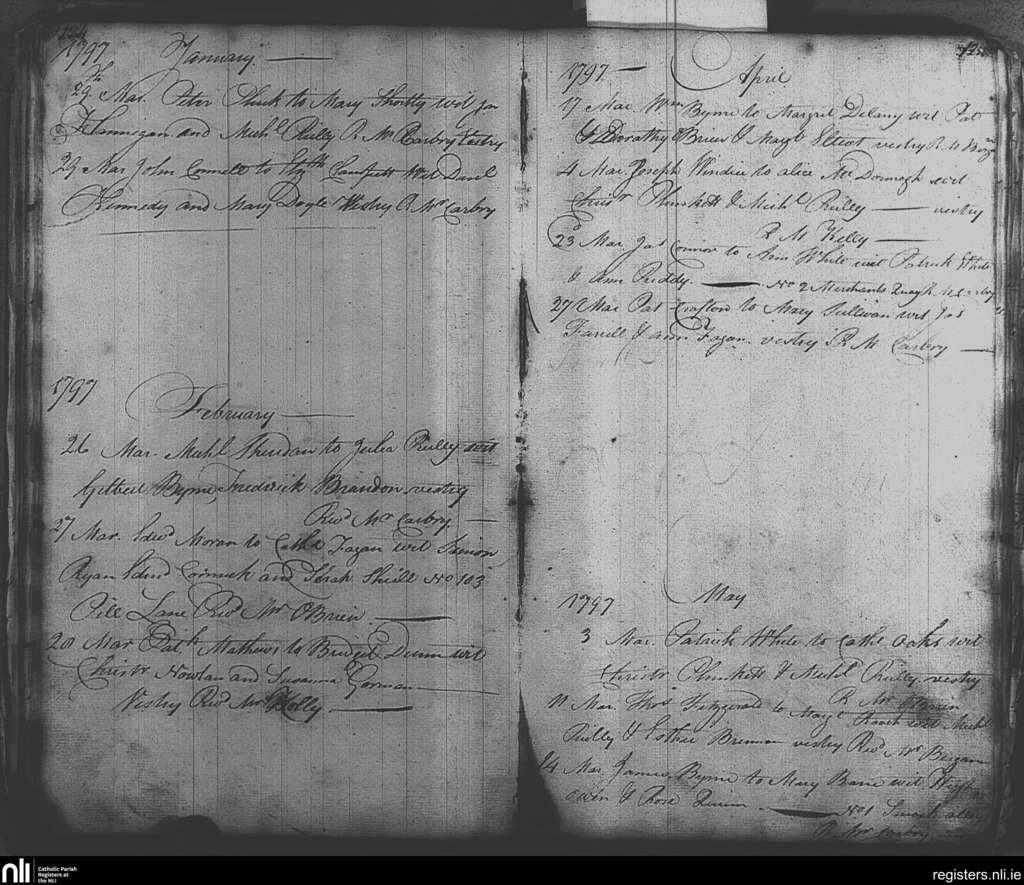 124
1797 January
29th Mar. Peter Plunk to Mary Shortly wit Jas
Flannegan and Michl Reilly R. Mr Carbry Vestry
29 Mar John Connell to Elizth wit Danl
Kennedy and Mary Doyle Vestry R Mr Carbry
1797
February
26 Mar. Michl Sheridan to Julia Reilly wit
Gilbert Byrne, Fredirick Brandon vestry
Revd Mr Carbry
27 Mar. Edwd Moran to Cathe Fagan wit Simon
Ryan Edmd Cormick and Sarah Shiell No 103
Pill Lane Revd Mr OBrien.
28 Mar Patk Mathews to Bridget Dunn wit
Christr Nowlan and Susanna Gorman
Vestry Revd Mr Kelly
125
1797 April
17 Mar. Wm Byrne to Margret Delany wit Pat
& Dorothy OBrien & Margt Elliot vestry R. M
4 Mar. Joseph to Alice Mc Donnogh wit
Christr Plunkett & Michl Reilly vestry
R M Kelly
23d Mar. Jas Connor to Ann White wit Patrick White
& Ann Reddy. No 2 Merchants Quay R. M Carbry
27 Mar Pat Crafton to Mary Sullivan wit Jas
Farrell & Ann Fagan. vestry R M Carbry
1797 May
3 Mar. Patrick White to Cathe Oaks wit
Christr Plunkett & Michl Reilly. vestry
R Mr OBrien
11 Mar. Thos Fitzgerald to Margt Roach wit Michl
Reilly & Esther Brennan vestry Revd Mr
14 Mar James Byrne to Mary wit Hugh
Owen & Rose Quinn No 1 Smock alley
R Mr Carbry
nli Catholic Parish
Registers at
the NLI
registers.nli.ie